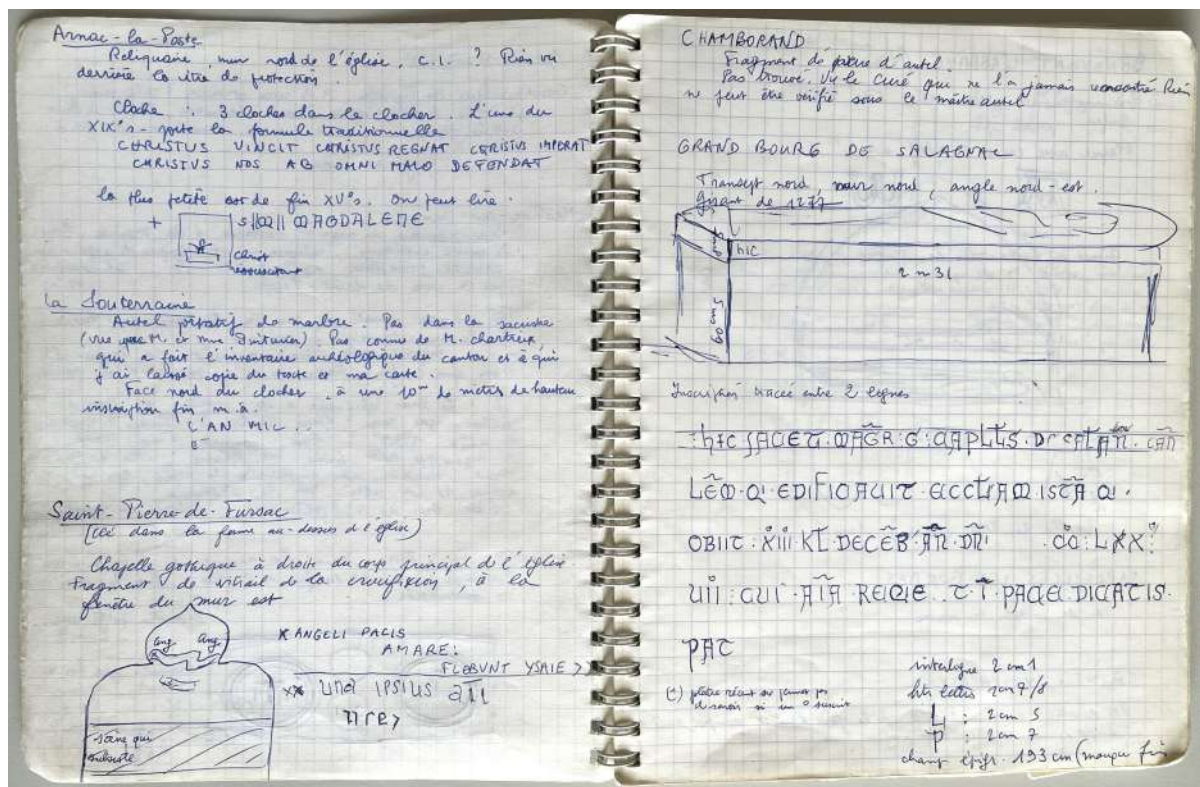 Arnac-la-Poste
Reliquaire, mur nord de l'église, C.I. ? Rien vu
derrière la vitre de protection.
Cloche : 3 cloches dans le clocher. L'une du
XIX°s - porte la formule traditionnelle
CHRISTUS VINCIT CHRISTUS REGNAT CHRISTVS IMPERAT
CHRISTVS NOS AB OMNI MALO DEFENDAT
la plus petite est de fin XV°s. On peut lire.
+ MAGDALENE
christ
ressuscitant
La Souterraine
Autel portatif de marbre. Pas dans la sacristie
(vue par M. et Mme). Pas connu de M. chartreux
qui a fait l'inventaire archéologique du canton et à qui
j'ai laissé copie du texte et ma carte.
Face nord du clocher, à une 10ne de mètres de hauteur
inscription fin m.a.
L'AN MIL ..
Saint-Pierre-de-Fursac
(clé dans la ferme au-dessus de l'église)
Chapelle gothique à droite du corps principal de l'église.
Fragment de vitrail de la crucifixion, à la
fenêtre du mur est
ang ang
x ANGELI PACIS
AMARE:
FLEBVNT YSAIE >
xx una IPSIUS
scène qui
subsiste
CHAMBORAND
Fragment de pierre d'autel.
Pas trouvé. Vu le curé qui ne l'a jamais rencontré Rien
ne peut être vérifié sous le maître autel
GRAND BOURG DE SALAGNAC
Transept nord, mur nord, angle nord-est.
Gisant de 1277
hIC
2 m 31
60 cm 5
Inscription tracée entre 2 lignes
: hIC JACET . MAGR : G : CAPLLS . D
LEM . Q' EDIFICAUIT . ECCLIAM ISTA Q' .
OBIIT : XIII KL DECEB' AN . DNI . CC : LXX :
UII : CUI . AIA . REQIE .. T . I . PACE DICATIS .
PAT
interligne 2 cm 1
htr lettres 2 cm 7/8
L : 2 cm 5
P : 2 cm 7
champ épigr. 193 cm (manque fin